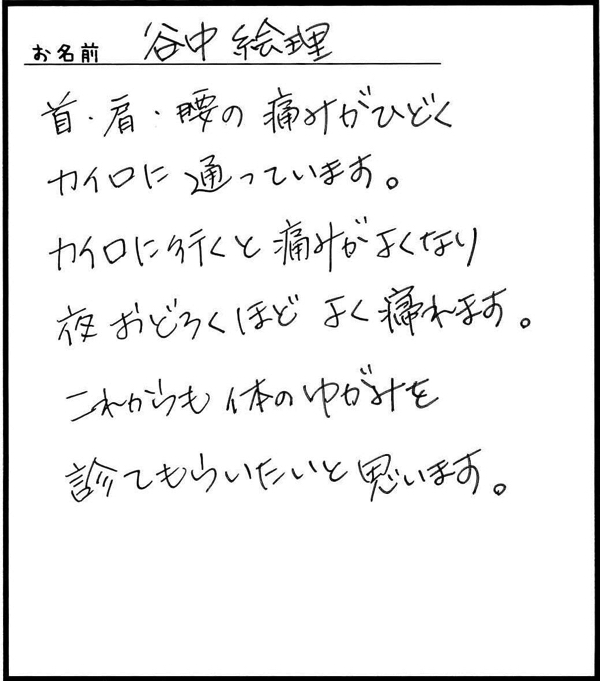 お名前 谷中 絵理
首・肩・腰の痛みがひどく
カイロに通っています。
カイロに行くと痛みがよくなり
夜おどろくほどよく痛れます。
これからも体のゆがみを
診てもらいたいと思います。